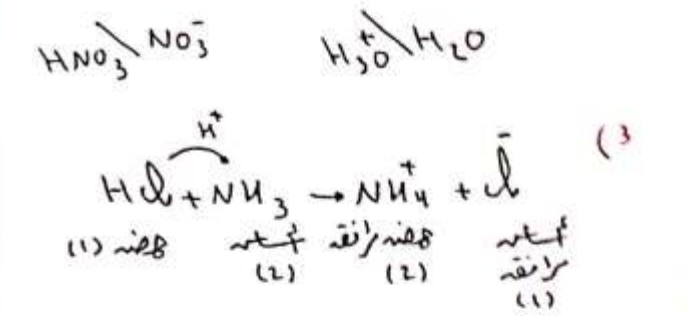 HNO₃ \ NO₃⁻    H₃O⁺ \ H₂O
(3
H⁺
HCl + NH₃ → NH₄⁺ + Cl⁻
حمض (1) أساس (2) حمض مرافق (2) أساس مرافق (1)